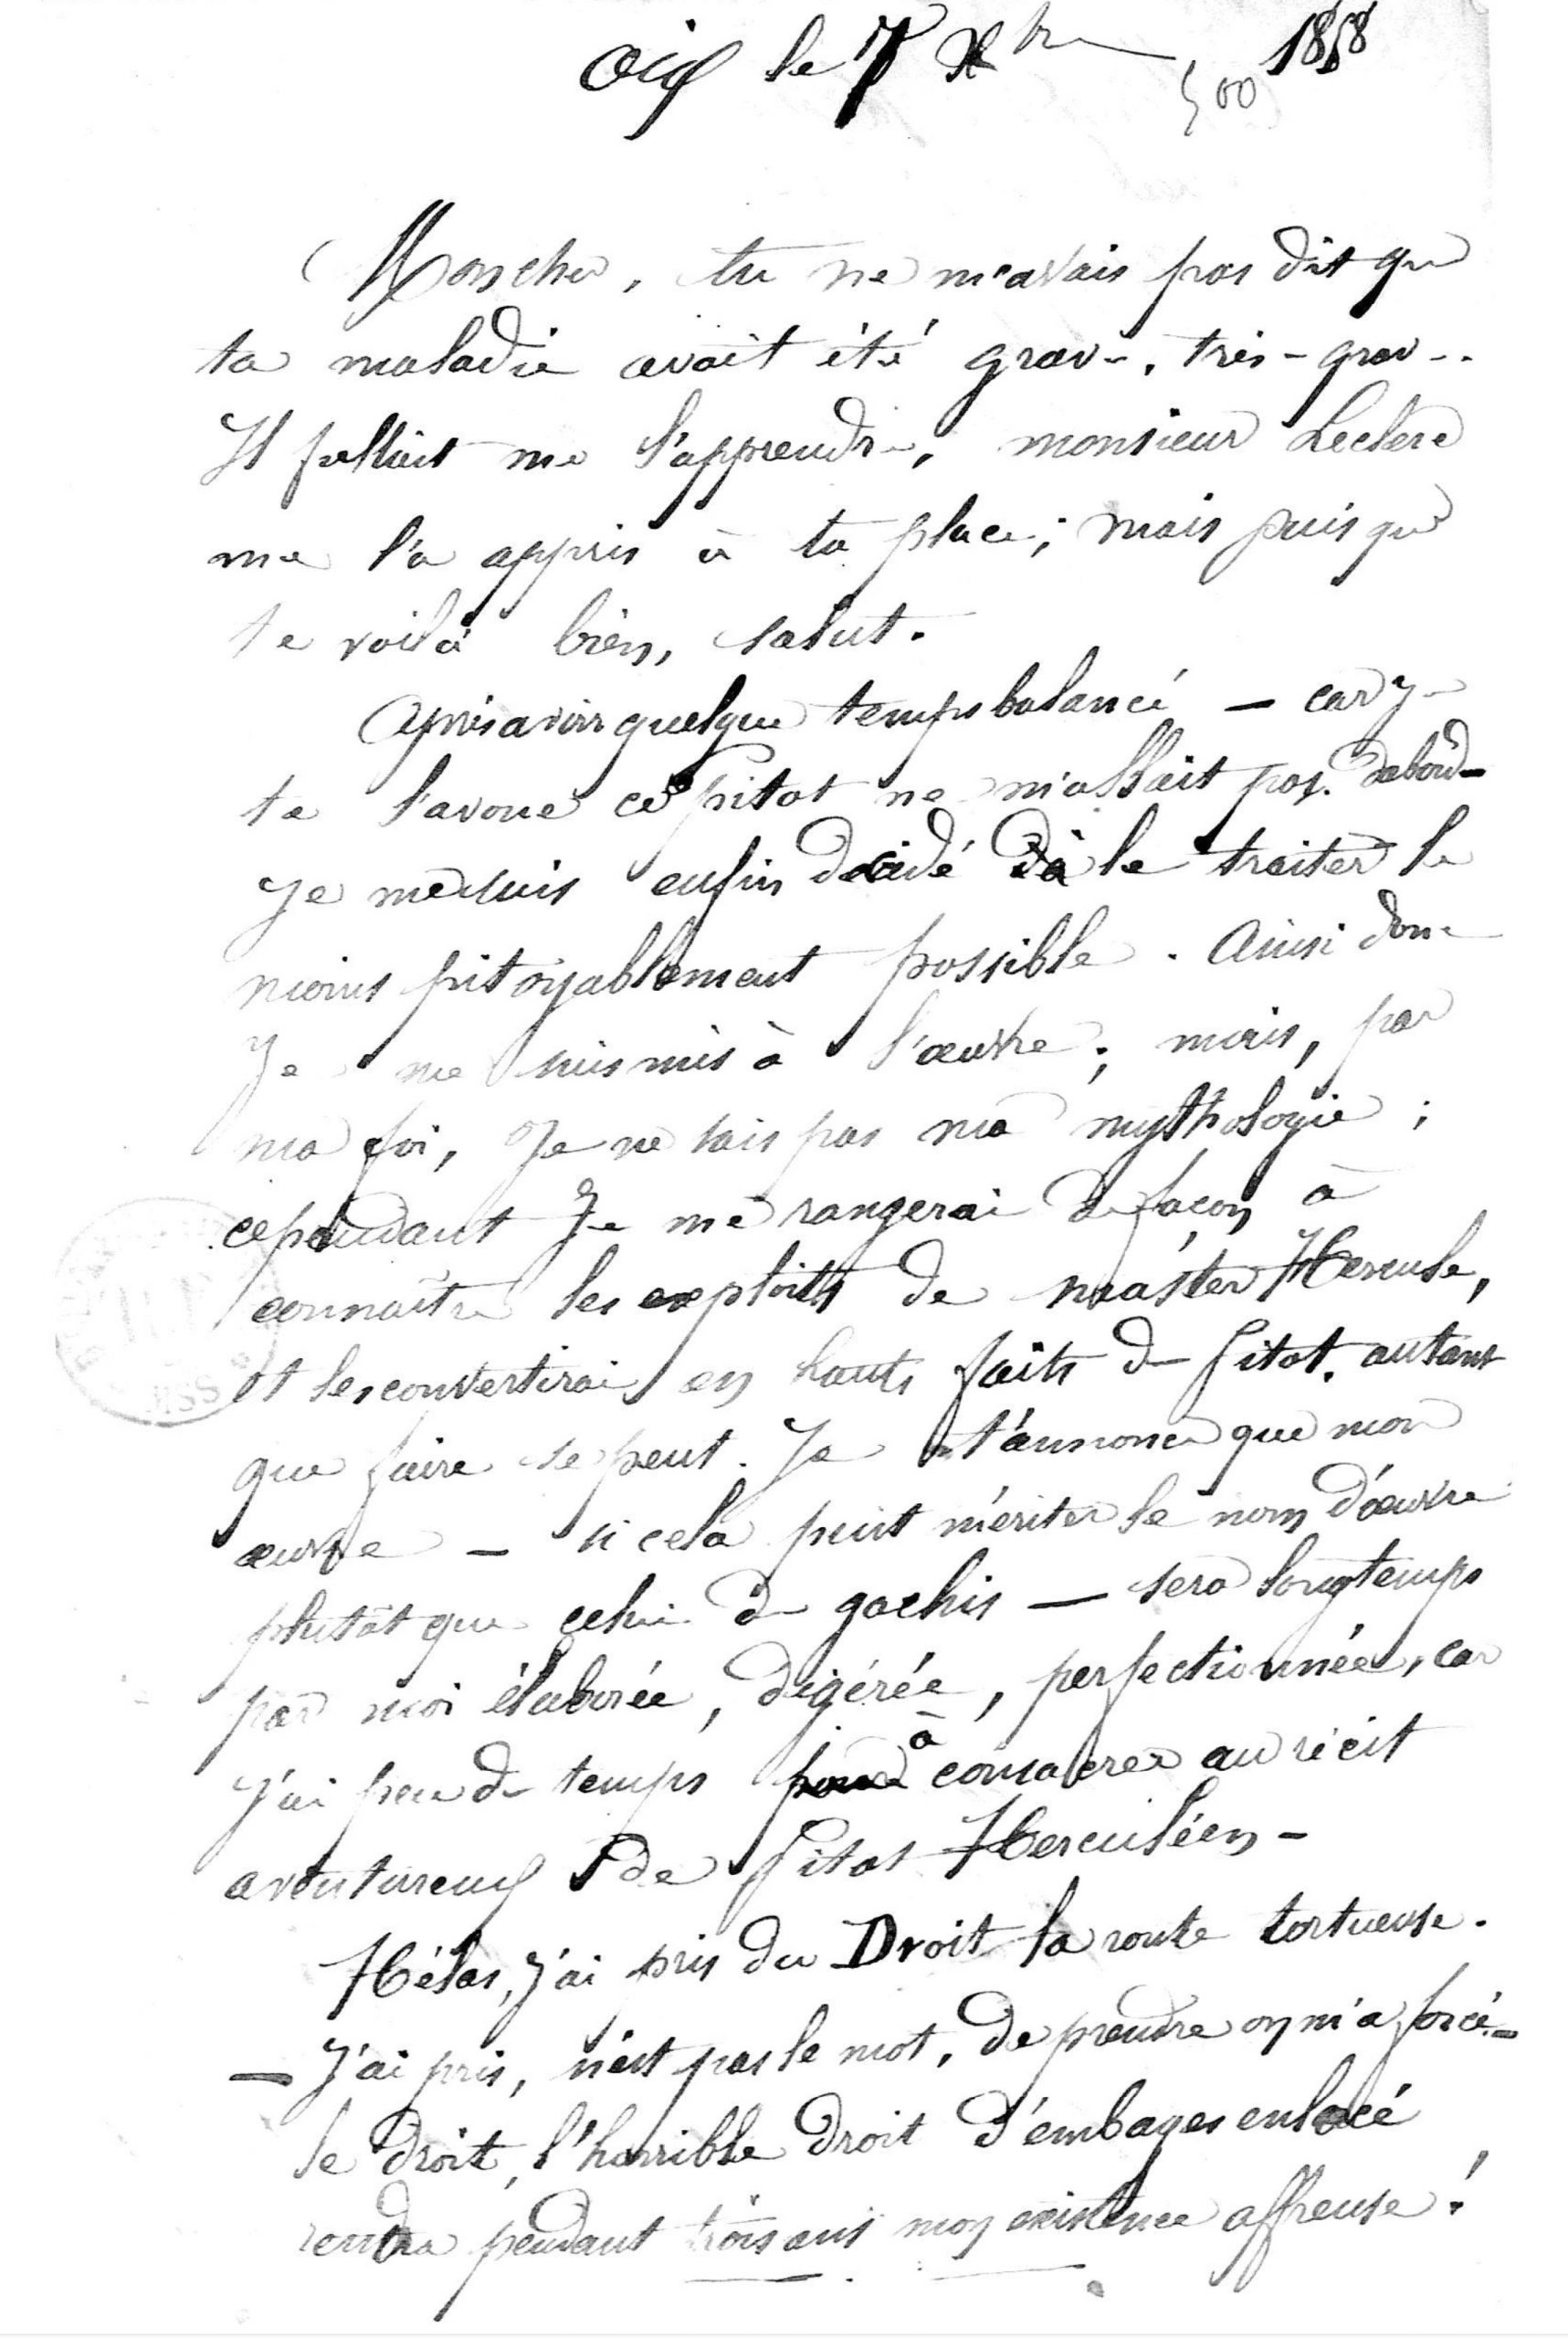 Aix le 7 Xbre 1858
500
Mon cher, tu ne m'avais pas dit que
ta maladie avait été grave, très-grave.
Il fallait me l'apprendre, monsieur Leclère
me l'a appris à ta place ; mais puisque
te voilà bien, salut.
Après avoir quelque temps balancé — car je
te l'avoue ce Pitot ne m'allait pas d'abord —
je me suis enfin décidé à le traiter le
moins pitoyablement possible. Ainsi donc
je me suis mis à l'œuvre ; mais, par
ma foi, je ne sais pas ma mythologie ;
cependant je me rangerai de façon à
connaître les exploits de master Hercule,
et les convertirai en hauts faits de Pitot, autant
que faire se peut. Je t'annonce que mon
œuvre — si cela peut mériter le nom d'œuvre
plutôt que celui de gachis — sera longtemps
par moi élaborée, digérée, perfectionnée, car
j'ai peu de temps à consacrer au récit
aventureux de Pitot Herculéen —
Hélas, j'ai pris du Droit la route tortueuse.
— J'ai pris, n'est pas le mot, de prendre on m'a forcé —
le droit, l'horrible droit d'embages enlacé
rendra pendant trois ans mon existence affreuse !